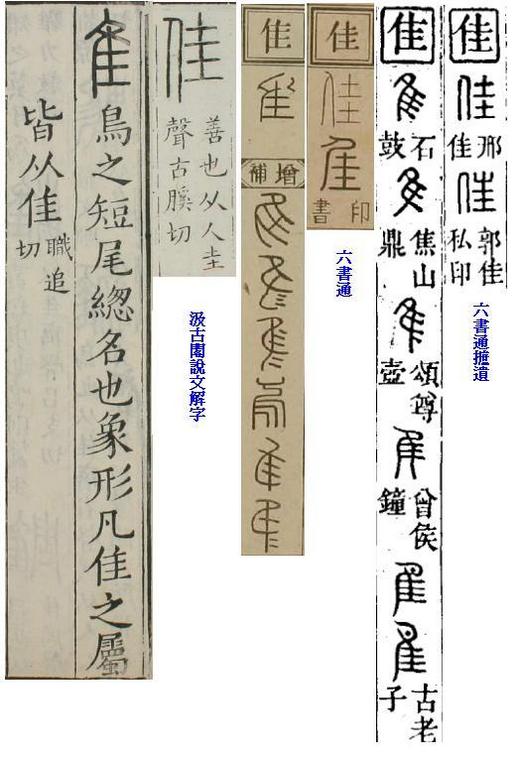 佳
邢佳
郭佳私印
六書通摭遺
隹
石鼓
焦山鼎
頌尊壺
曾侯鐘
古老子
佳
印書
六書通
隹
增補
佳
善也从人圭
聲古膎切
汲古閣說文解字
隹
鳥之短尾緫名也象形凡隹之屬
皆从隹
職追切